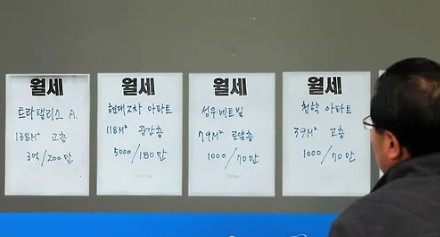 월세
트라팰리스 A.
138M² 고층
3억/200만
월세
현대2차 아파트
118M²
5000/180만
월세
성우네트빌
79M² 로얄층
1000/70만
월세
청학 아파트
39M² 고층
1000/70만